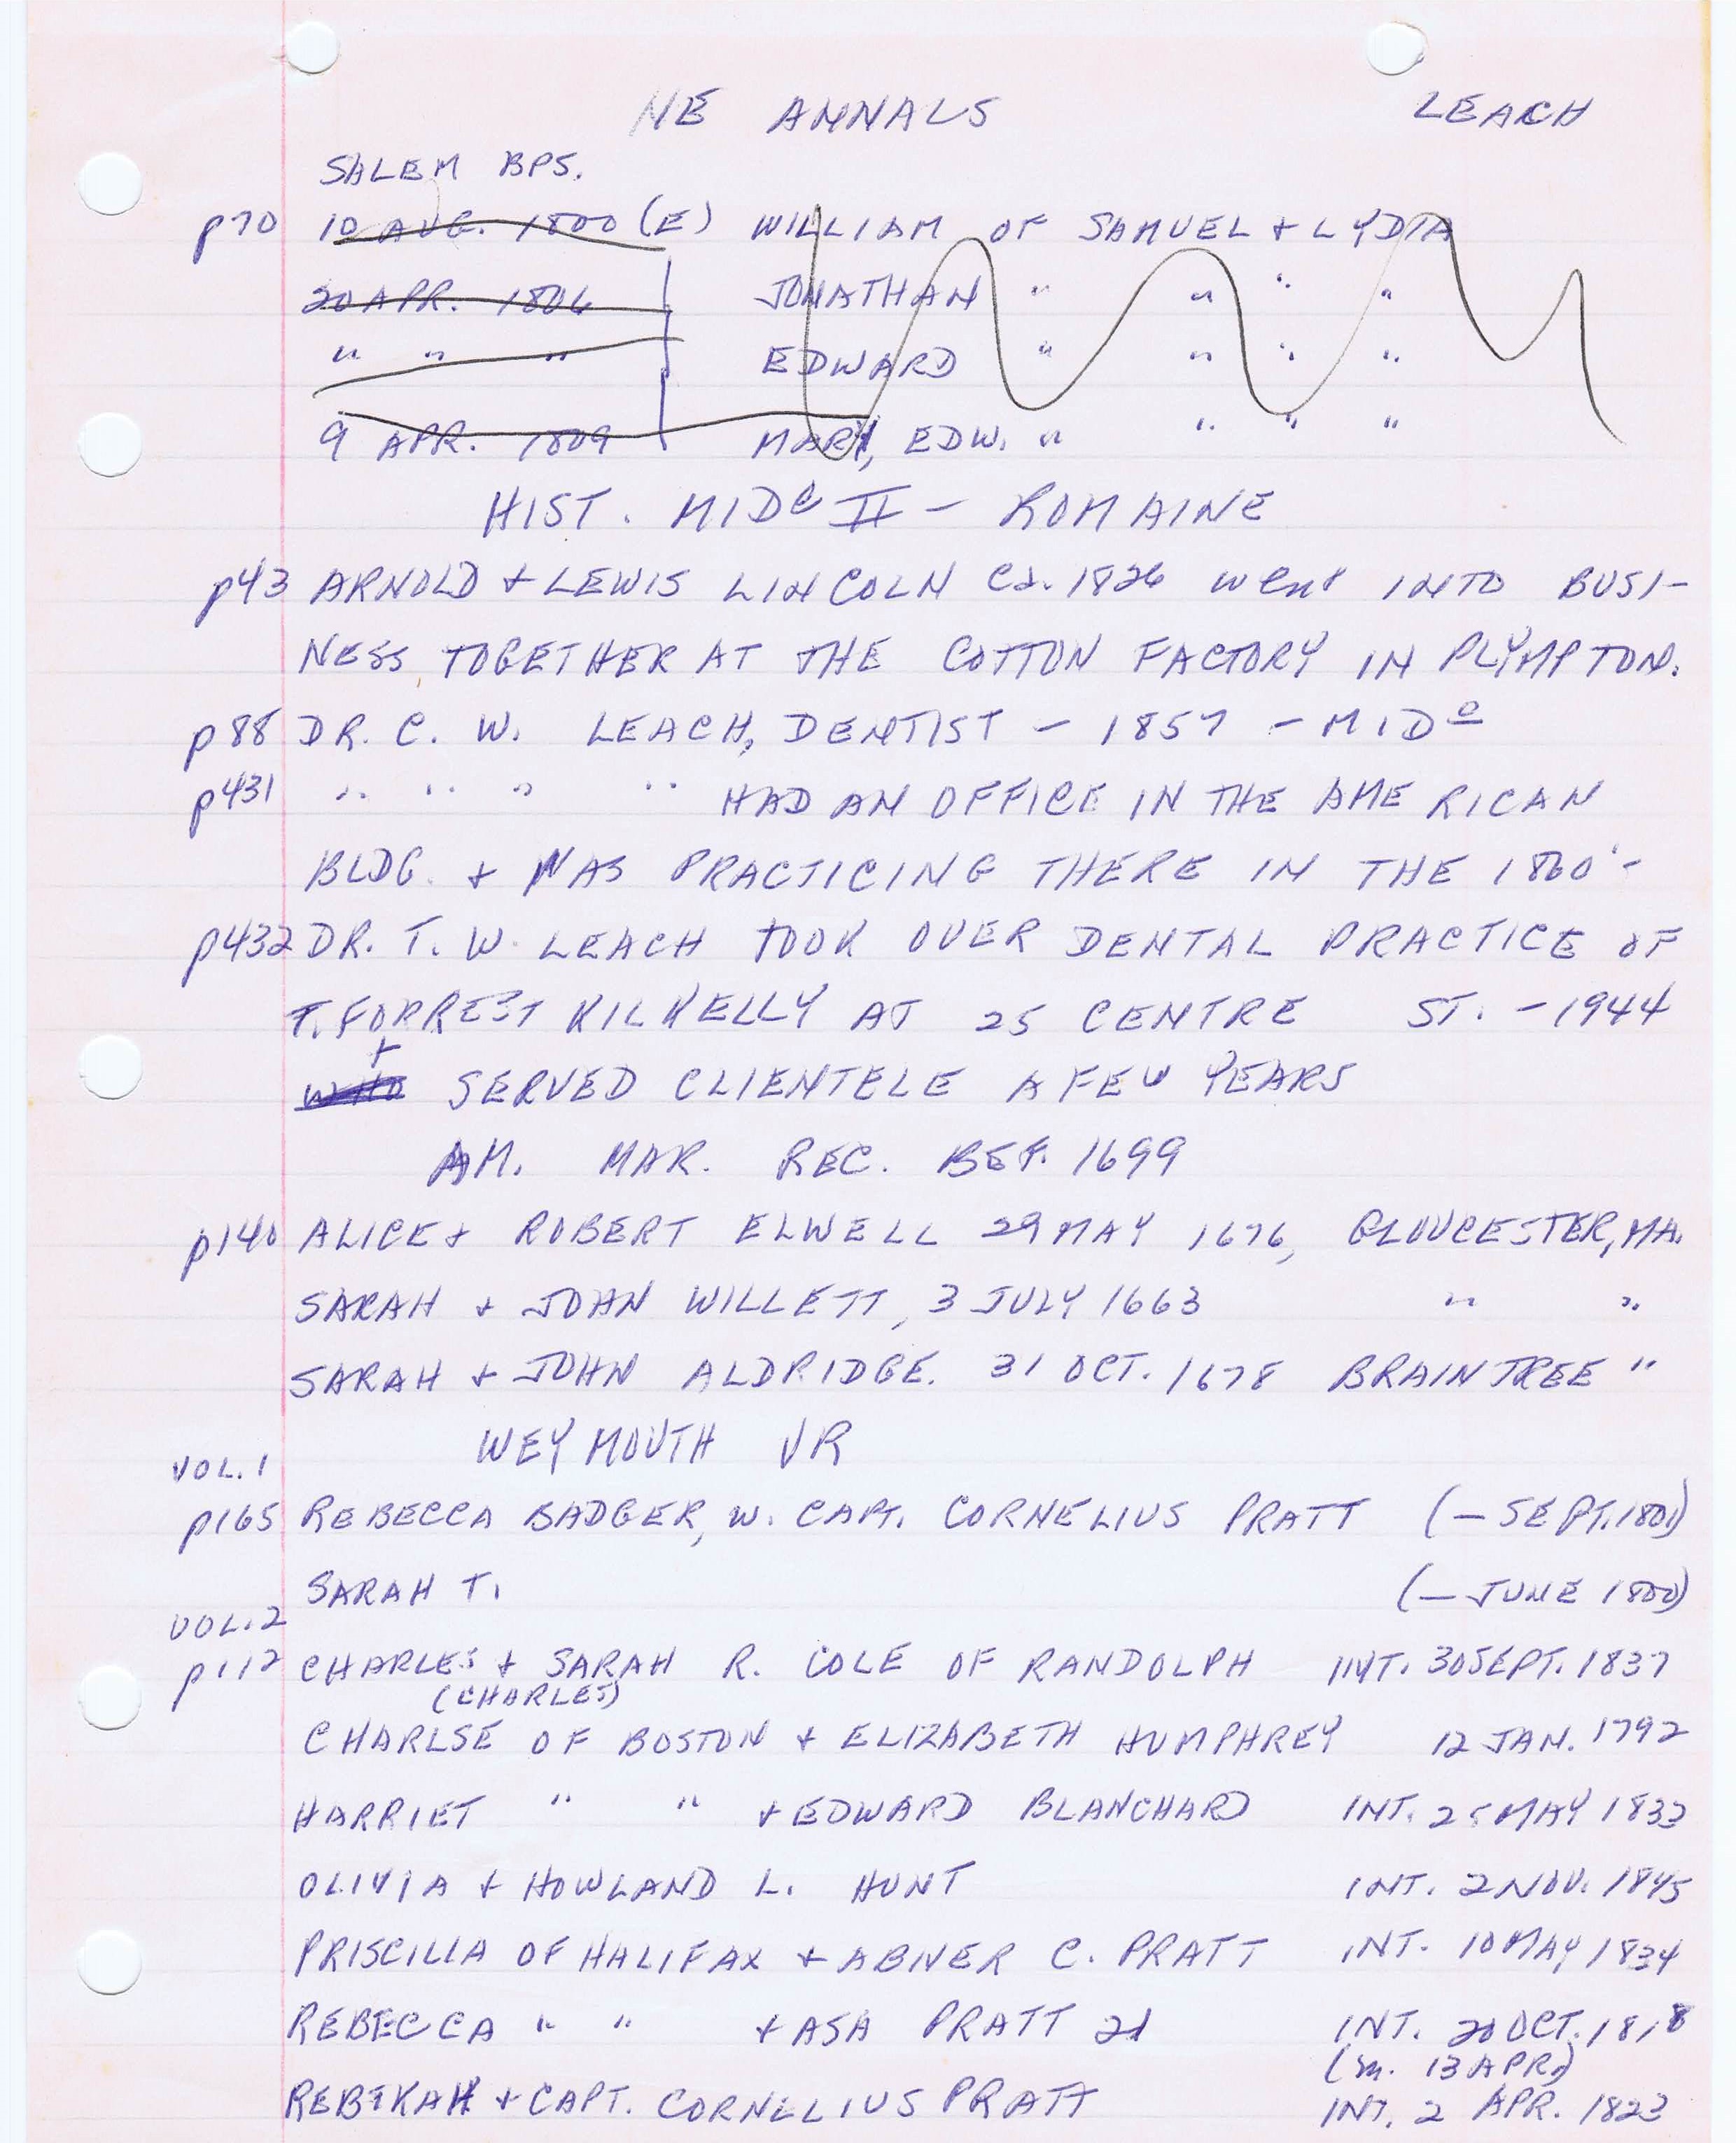 NE ANNALS LEACH
SALEM BPS.
p70 10 AUG. 1800 (E) WILLIAM OF SAMUEL + LYDIA
20 APR. 1806 JONATHAN " " " "
" " " EDWARD " " " "
9 APR. 1809 MARY, EDW. " " " "
HIST. MIDº II - ROMAINE
p43 ARNOLD + LEWIS LINCOLN Ca. 1826 went INTO BUSI-
NESS TOGETHER AT THE COTTON FACTORY IN PLYMPTON.
p88 DR. C. W. LEACH, DENTIST - 1857 - MIDº
p431 " " " " HAD AN OFFICE IN THE AMERICAN
BLDG. + WAS PRACTICING THERE IN THE 1860's
p432 DR. T. W. LEACH TOOK OVER DENTAL PRACTICE OF
T. FORREST KILKELLY AT 25 CENTRE ST. - 1944
+
WHO SERVED CLIENTELE A FEW YEARS
AM. MAR. REC. BEF. 1699
p140 ALICE + ROBERT ELWELL 29 MAY 1676, GLOUCESTER, MA.
SARAH + JOHN WILLETT, 3 JULY 1663 " "
SARAH + JOHN ALDRIDGE. 31 OCT. 1678 BRAINTREE "
WEYMOUTH VR
VOL. 1
p165 REBECCA BADGER, W. CAPT. CORNELIUS PRATT (- SEPT. 1801)
SARAH T. (- JUNE 1800)
VOL. 2
p112 CHARLES + SARAH R. COLE OF RANDOLPH INT. 30 SEPT. 1837
(CHARLES)
CHARLSE OF BOSTON + ELIZABETH HUMPHREY 12 JAN. 1792
HARRIET " " + EDWARD BLANCHARD INT. 25 MAY 1833
OLIVIA + HOWLAND L. HUNT INT. 2 NOV. 1845
PRISCILLA OF HALIFAX + ABNER C. PRATT INT. 10 MAY 1834
REBECCA " " + ASA PRATT 2d INT. 20 OCT. 1818
(m. 13 APR.)
REBEKAH + CAPT. CORNELIUS PRATT INT. 2 APR. 1823